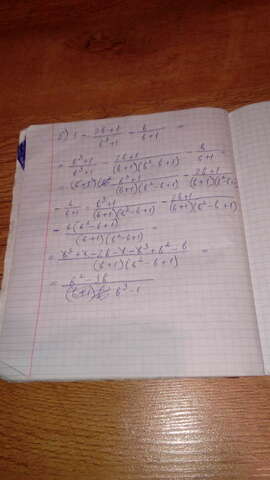 б) 1 - 2b+1/b³+1 - b/b+1 =
= b³+1/b³+1 - 2b+1/(b+1)(b²-b+1) - b/b+1 =
= b³+1/(b+1)(b²-b+1) - 2b+1/(b+1)(b²-b+1)
- b/b+1 = b³+1/(b+1)(b²-b+1) - 2b+1/(b+1)(b²-b+1)
- b(b²-b+1)/(b+1)(b²-b+1) =
= b³+1-2b-1-b³+b²-b/(b+1)(b²-b+1) =